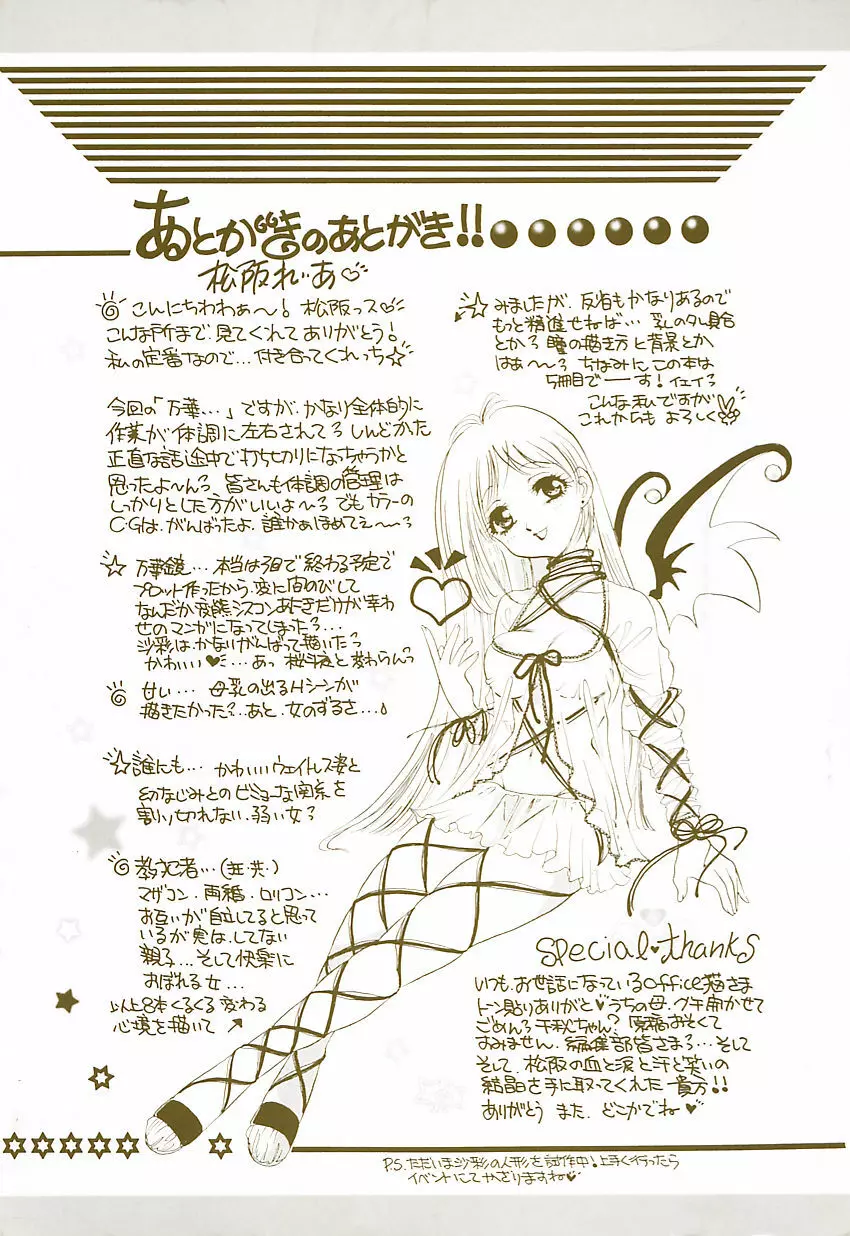 あとがきのあとがき!!
松阪れいあ♡
こんにちわわぁ〜! 松阪っス♡
こんな所まで、見てくれてありがとう!
私の定番なので…付き合ってくれっち☆
今回の「万華…」ですが、かなり全体的に
作業が体調に左右されてる しんどかた
正直な話途中で打ち切りになっちゃうかと
思ったよ〜ん 皆さんも体調の管理は
しっかりとした方がいいよ〜 でもカラーの
CGは、がんばったよ、誰かぁほめてぇ〜
☆ 万華鏡…本当は3回で終わる予定で
プロット作ったから、変に間のびして
なんだか変態シスコンあにきだけが幸わ
せのマンガになってしまった…
沙彩は、かなりがんばって描いた
かわいい♥…あっ 桜斗と変わらんっ
甘い… 母乳の出るHシーンが
描きたかった?…あと、女のずるさ…
☆誰にも… かわいいウェイトレス姿と
幼なじみとのビミョーな関系を
割り切れない、弱い女
教犯者…(共)
マザコン・再婚・ロリコン…
お互いが自立してると思って
いるが実は、してない
親子…そして快楽に
おぼれる女…
以上8本くるくる変わる
心境を描いて
☆みましたが、反省もかなりあるので
もっと精進せねば… 乳のタレ具合
とか 瞳の描き方に背景とか
はぁ〜 ちなみにこの本は
5冊目でーす! イェイ
こんな私ですが
これからも よろしく
Special♥thanks
いつも、お世話になっているOffice猫さま
トーン貼りありがと♥うちの母、グチ聞かせて
ごめん 千秋ちゃん? 原稿おそくて
すみません、編集部皆さま… そして
そして、松阪の血と涙と汗と笑いの
結晶を手に取ってくれた貴方!!
ありがとう また、どこかでね♥
P.S.ただいま沙彩の人形を試作中! 上手く行ったら
イベントにてかざりますね♥